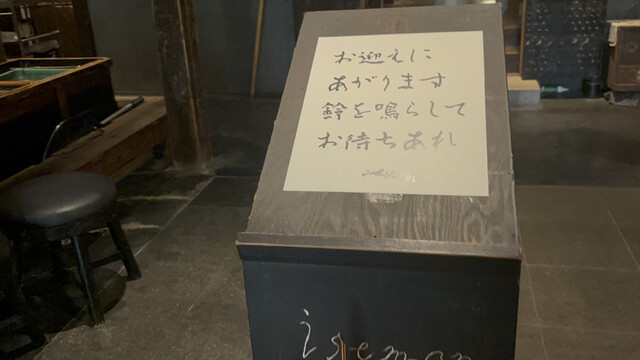 お迎えに
あがります
鈴を鳴らして
お待ちあれ
iseman